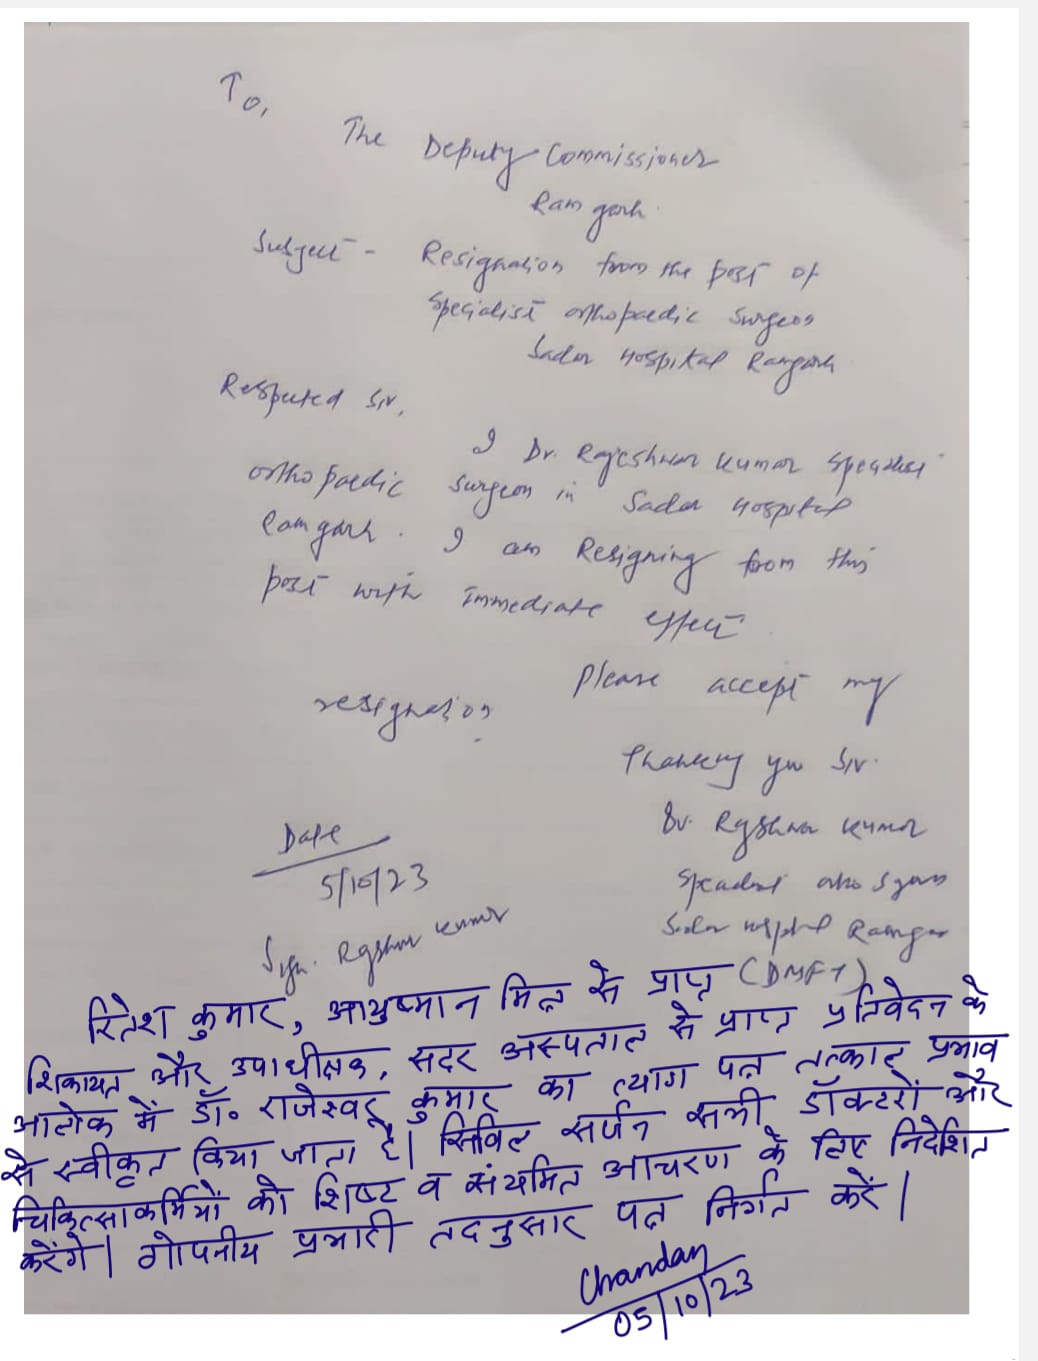 To,
The Deputy Commissioner
Ramgarh
Subject - Resignation from the post of
Specialist orthopaedic Surgeon
Sadar Hospital Ramgarh
Respected Sir,
I Dr. Rajeshwar Kumar Specialist
orthopaedic surgeon in Sadar Hospital
Ramgarh. I am Resigning from this
post with immediate effect
Please accept my
resignation
Thanking you Sir.
Dr. Rajeshwar Kumar
Sadar Hospital Ramgarh
Date
5/10/23
Sign. Rajeshwar Kumar
(DMFT)
रितेश कुमार, आयुष्मान मित्र से प्राप्त
शिकायत और उपाधीक्षक, सदर अस्पताल से प्राप्त प्रतिवेदन के
आलोक में डॉ० राजेश्वर कुमार का त्याग पत्र तत्काल प्रभाव
से स्वीकृत किया जाता है। सिविल सर्जन सभी डॉक्टरों और
चिकित्साकर्मियों को शिष्ट व संयमित आचरण के लिए निदेशित
करेंगे। गोपनीय प्रभारी तदनुसार पत्र निर्गत करें।
Chandan
05/10/23